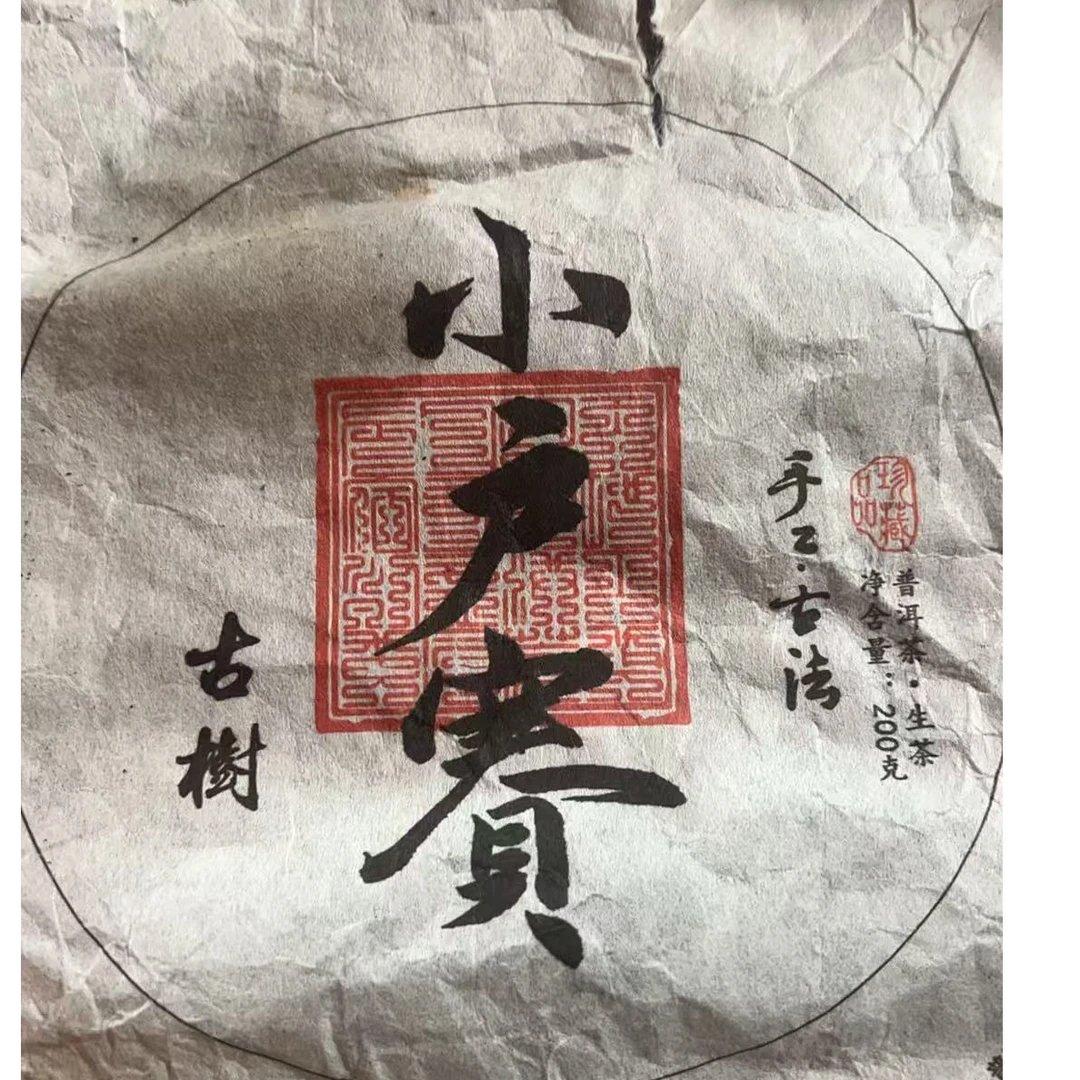 小户賽
古樹
手工·古法
珍藏品
普洱茶·生茶
净含量:200克